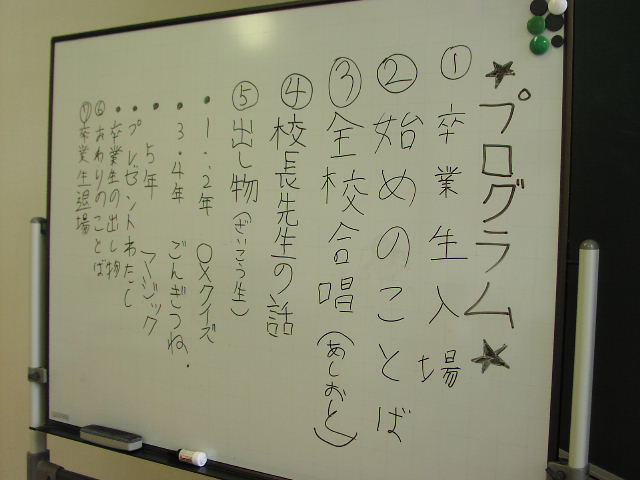 ★プログラム★
① 卒業生入場
② 始めのことば
③ 全校合唱(あしおと)
④ 校長先生の話
⑤ 出し物(ざいこう生)
・1.2年 ○×クイズ
・3.4年 ごんぎつね.
・5年 マジック
・プレゼントわたし
・卒業生の出し物
⑥ おわりのことば
⑦ 卒業生退場